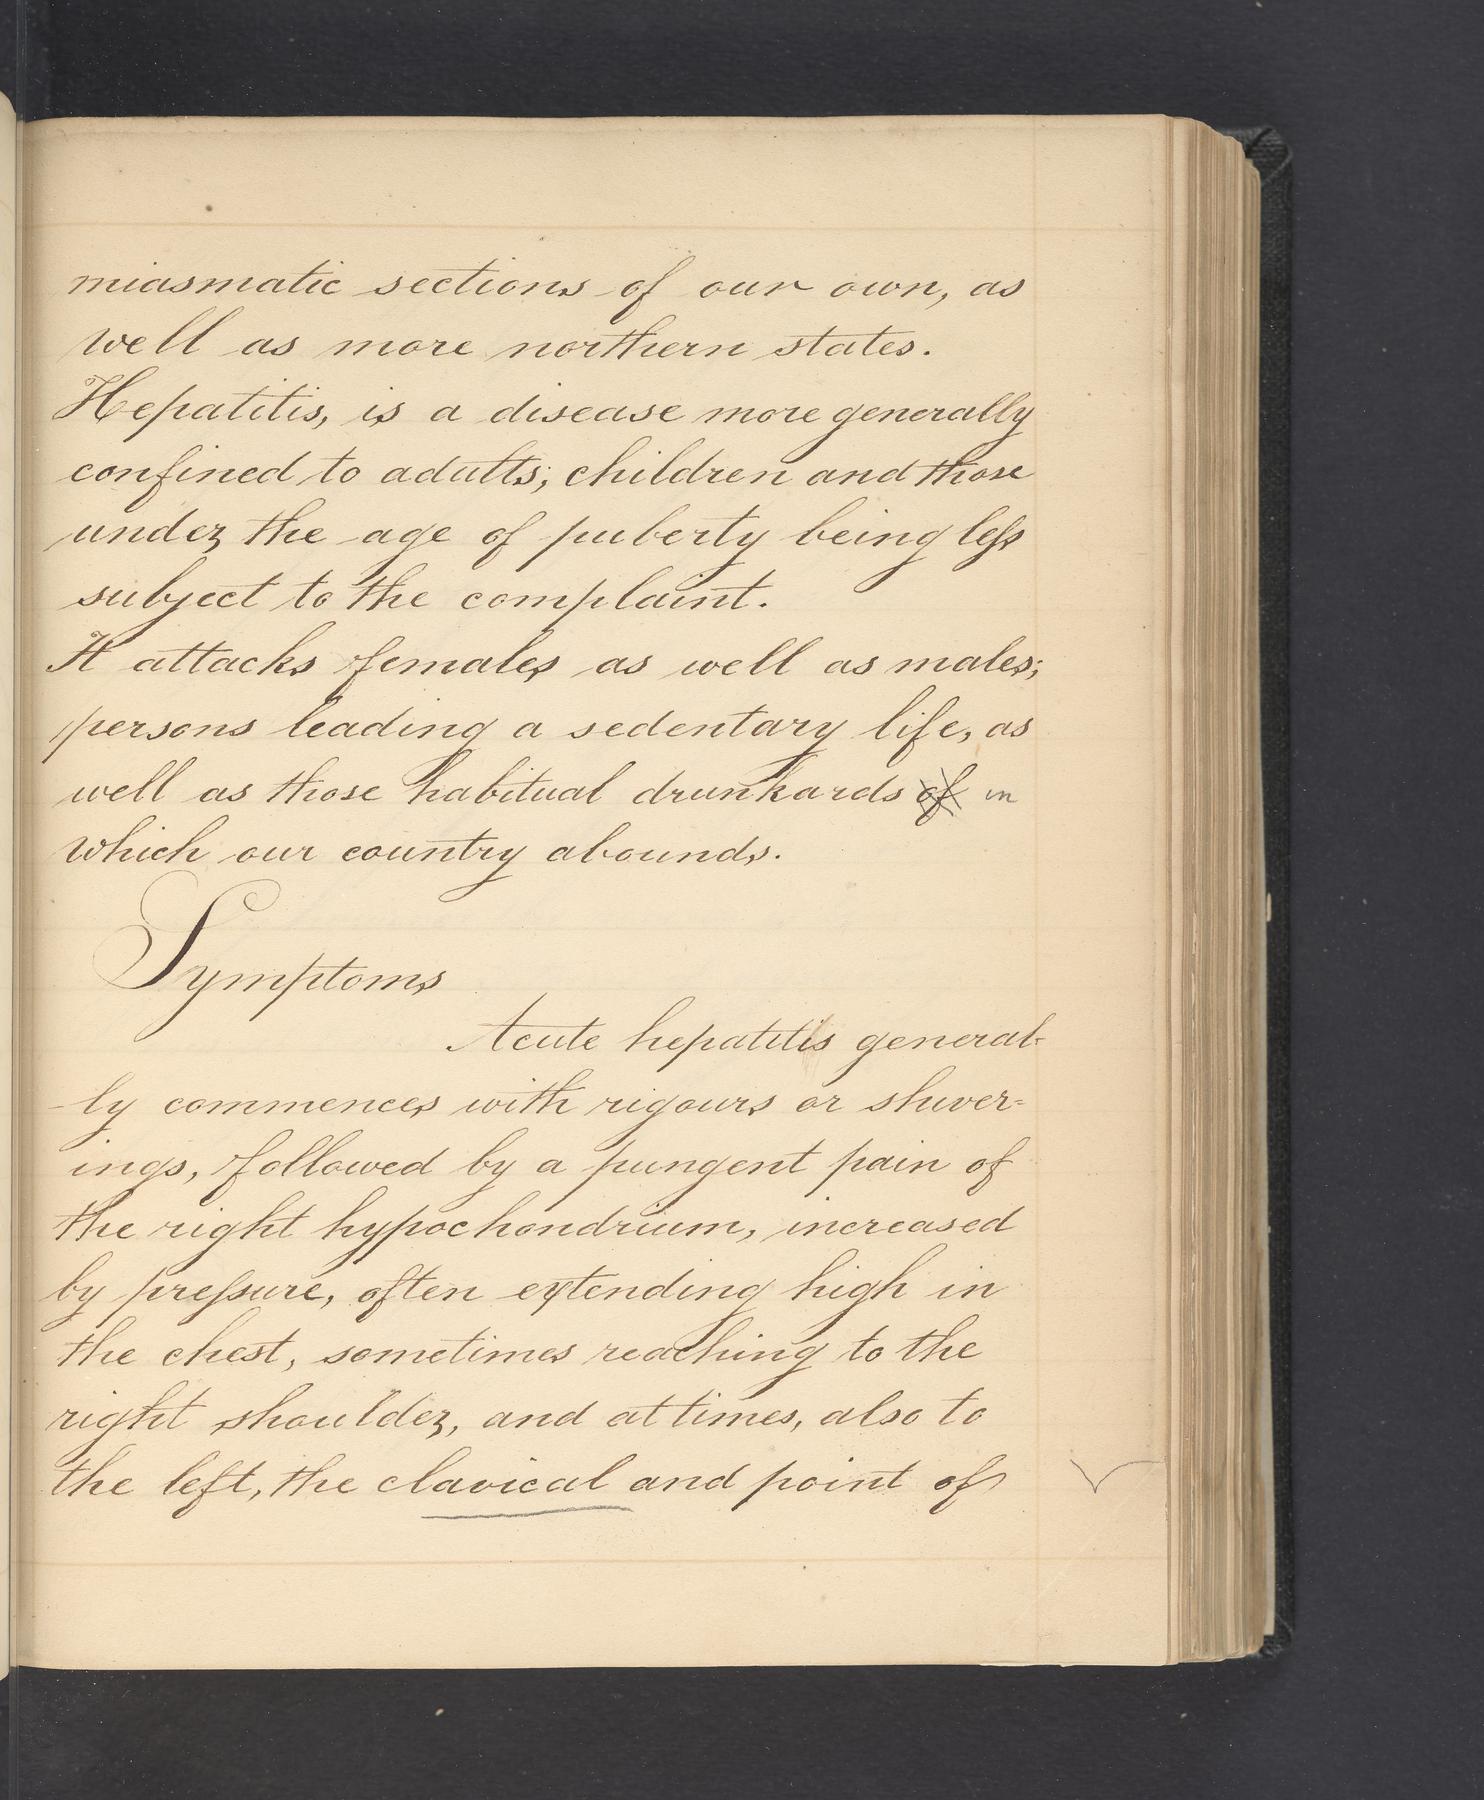 miasmatic sections of our own, as
well as more northern states.
Hepatitis, is a disease more generally
confined to adults; children and those
under the age of puberty being less
subject to the complaint.
It attacks females as well as males;
persons leading a sedentary life, as
well as those habitual drunkards of in
which our country abounds.
Symptoms
Acute hepatitis general-
-ly commences with rigours or shiver=
ings, followed by a pungent pain of
the right hypochondrium, increased
by pressure, often extending high in
the chest, sometimes reaching to the
right shoulder, and at times, also to
the left, the clavical and point of